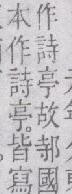 作詩亭故邿國
本作詩亭。皆寫